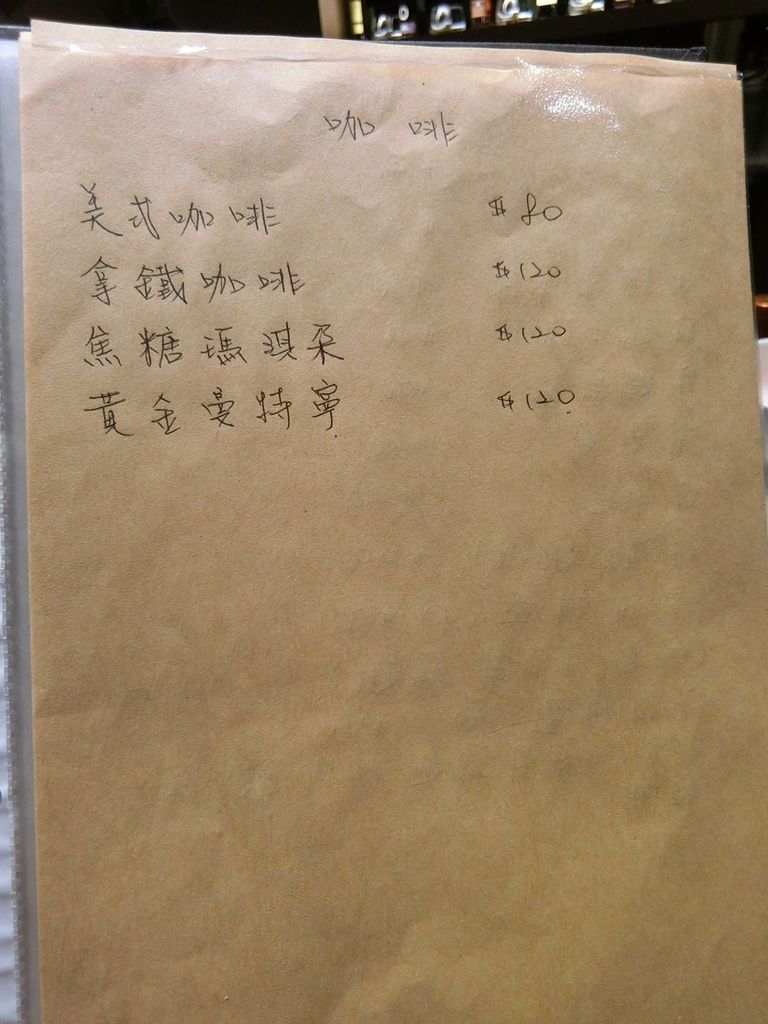 咖 啡
美式咖啡 $80
拿鐵咖啡 $120
焦糖瑪琪朵 $120
黃金曼特寧 $120